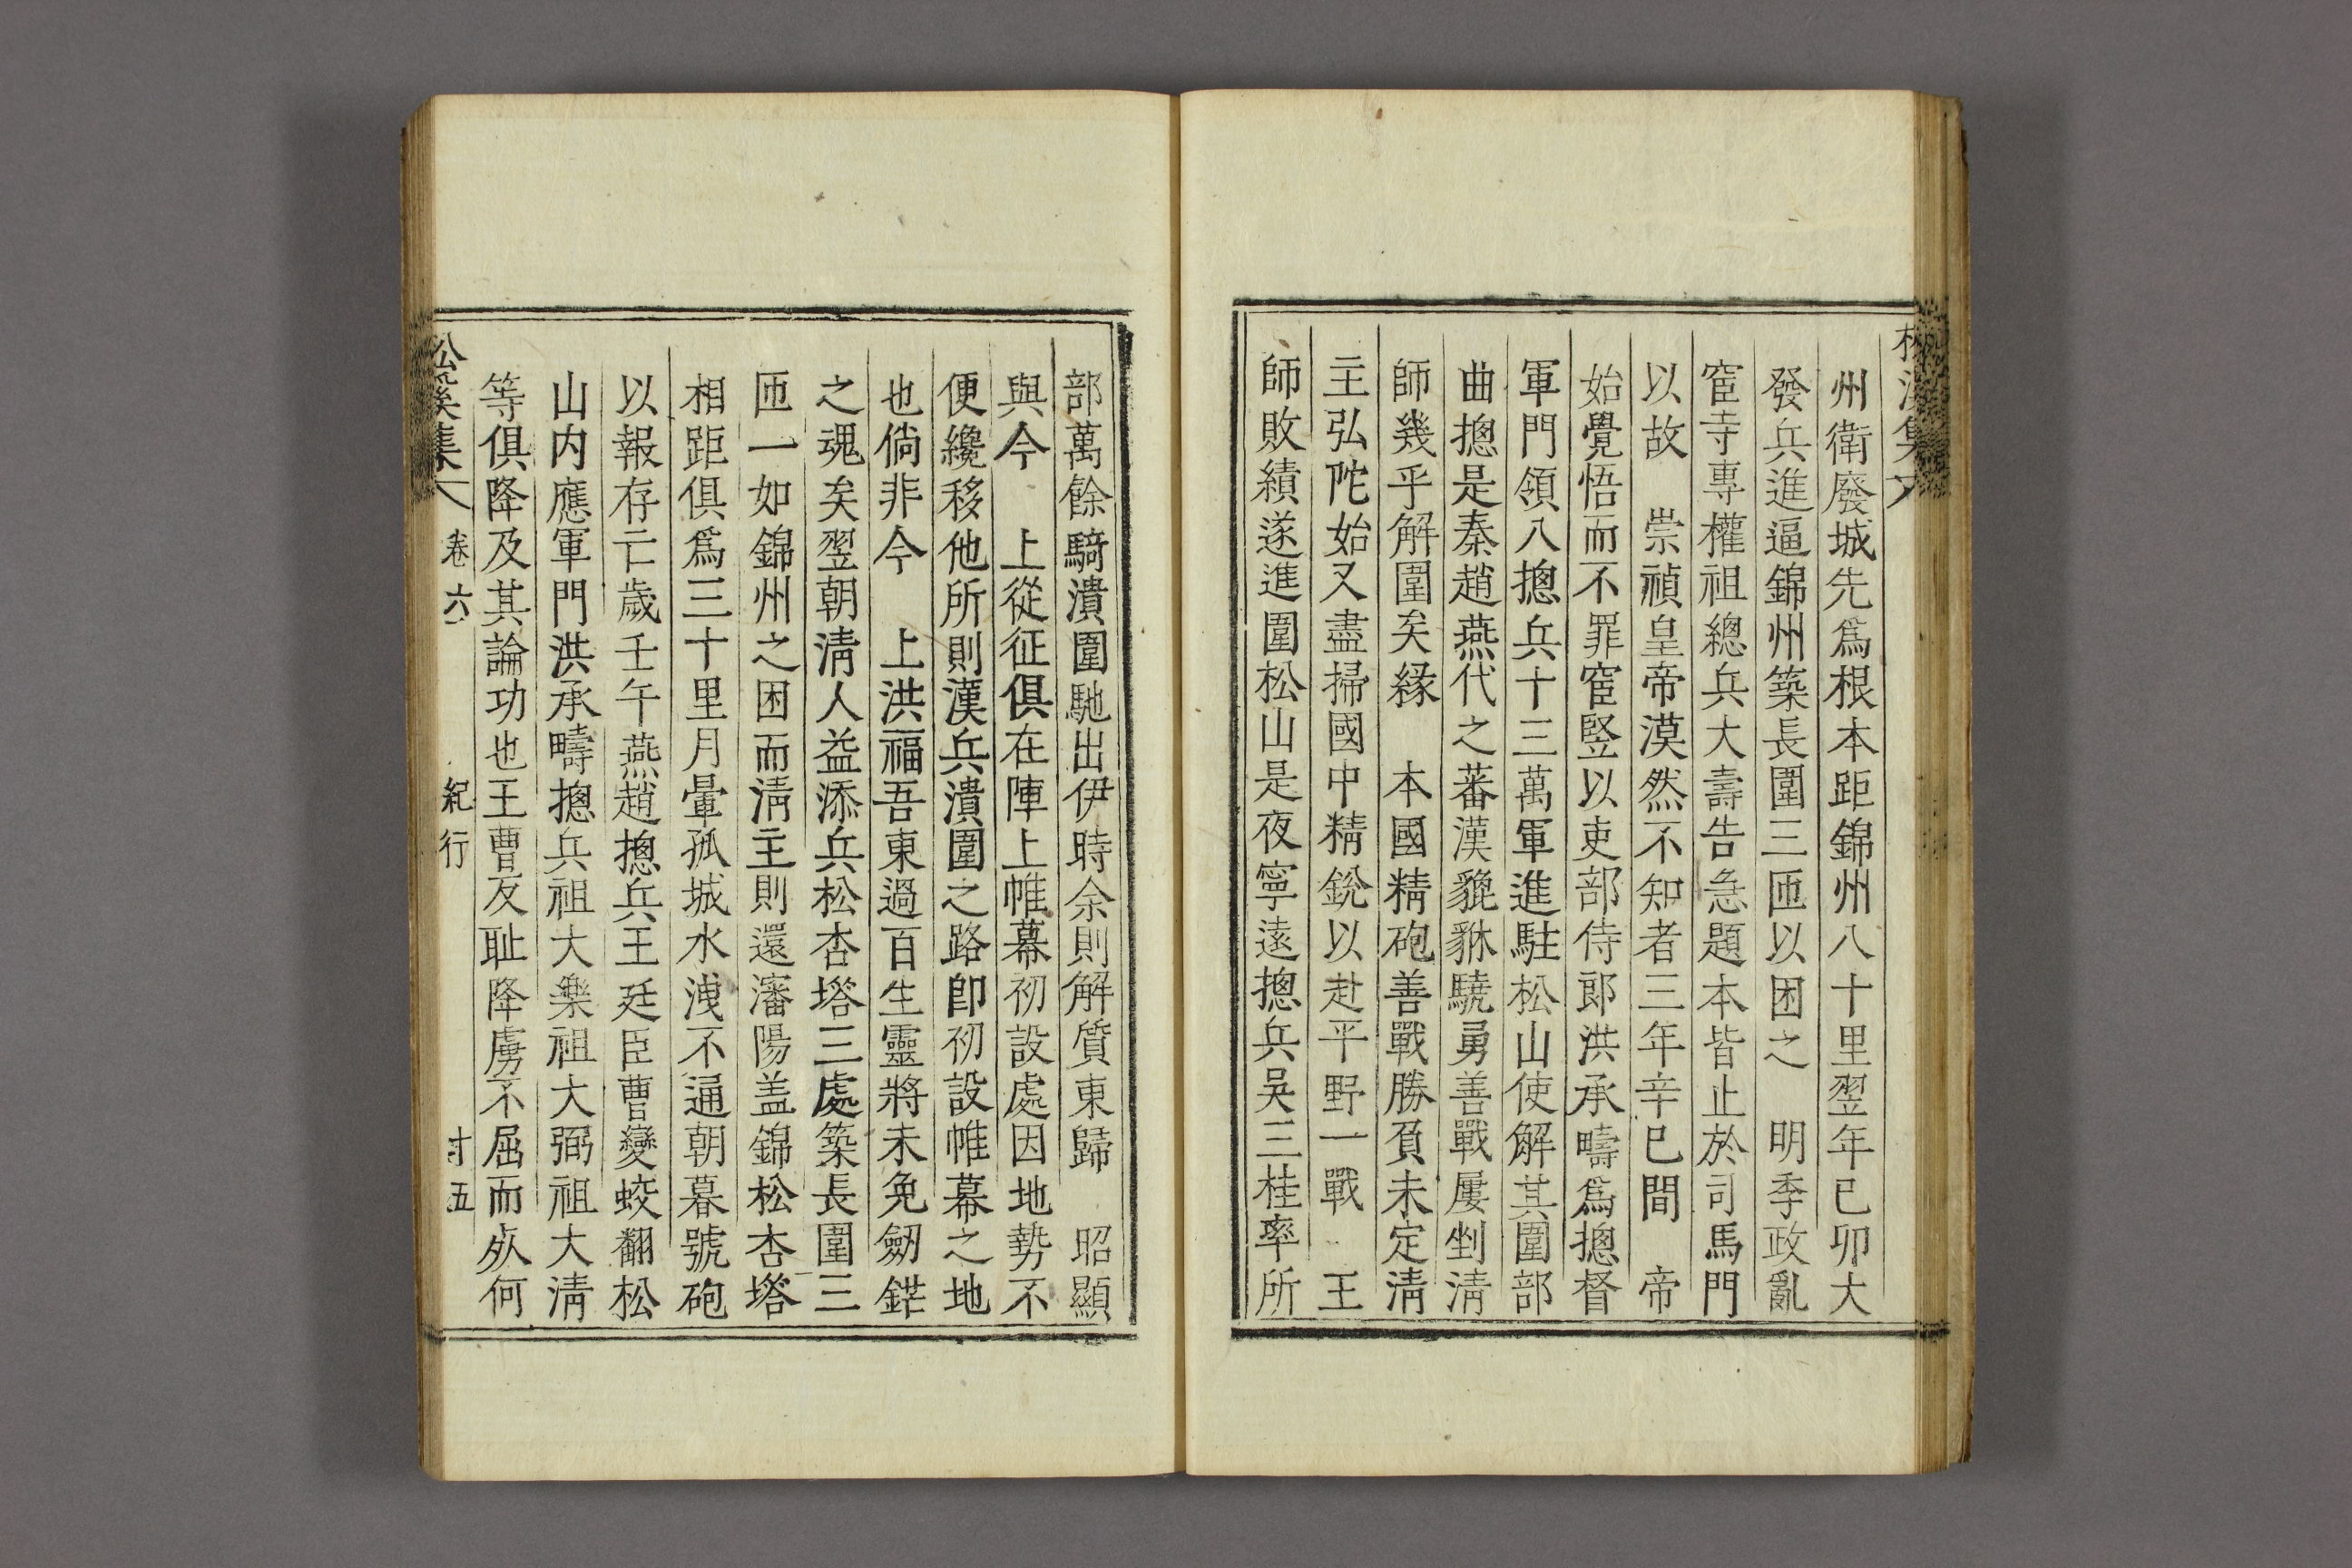 州衛廢城先爲根本距錦州八十里翌年已卯大
發兵進逼錦州築長圍三匝以困之　明季政亂
宦寺專權祖總兵大壽告急題本皆止於司馬門
以故　崇禎皇帝漠然不知者三年辛巳間　帝
始覺悟而不罪宦竪以吏部侍郎洪承疇爲摠督
軍門領八摠兵十三萬軍進駐松山使解其圍部
曲摠是秦趙燕代之蕃漢貔貅驍勇善戰屢剉淸
師幾乎解圍矣緣　本國精砲善戰勝負未定淸
主弘陀始又盡掃國中精銳以赴平野一戰　王
師敗績遂進圍松山是夜寧遠摠兵吳三桂率所
部萬餘騎潰圍馳出伊時余則解質東歸　昭顯
與今　上從征俱在陣上帷幕初設處因地勢不
便纔移他所則漢兵潰圍之路卽初設帷幕之地
也倘非今　上洪福吾東過百生靈將未免劒鋩
之魂矣翌朝淸人益添兵松杏塔三處築長圍三
匝一如錦州之困而淸主則還瀋陽盖錦松杏塔
相距俱爲三十里月暈孤城水洩不通朝暮號砲
以報存亡歲壬午燕趙摠兵王廷臣曹變蛟翻松
山内應軍門洪承疇摠兵祖大樂祖大弼祖大淸
等俱降及其論功也王曹反耻降虜不屈而死何
松溪集　卷六　紀行　十五